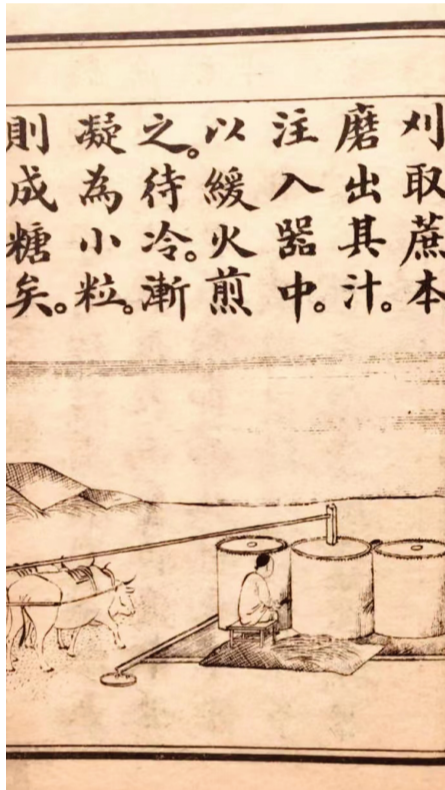 刈取蔗本
磨出其汁。
注入器中。
以緩火煎
之。待冷。漸
凝為小粒。
則成糖矣。